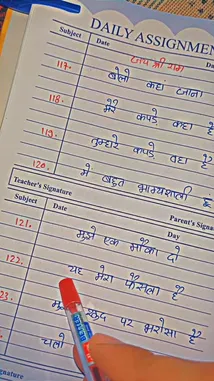 DAILY ASSIGNMEN
Subject Date Da
जय श्री राम
117. बोलो कहा जाना
118. मेरे कपडे कहा है
119. तुम्हारे कपडे वहा है
120. मे बहुत भाग्यशाली हूँ
Teacher's Signature Parent's Signa
Subject Date Day
121. मुझे एक मौका दो
122. यह मेरा फैसला है
23. खुद पर भरोसा है
चलो
gnature